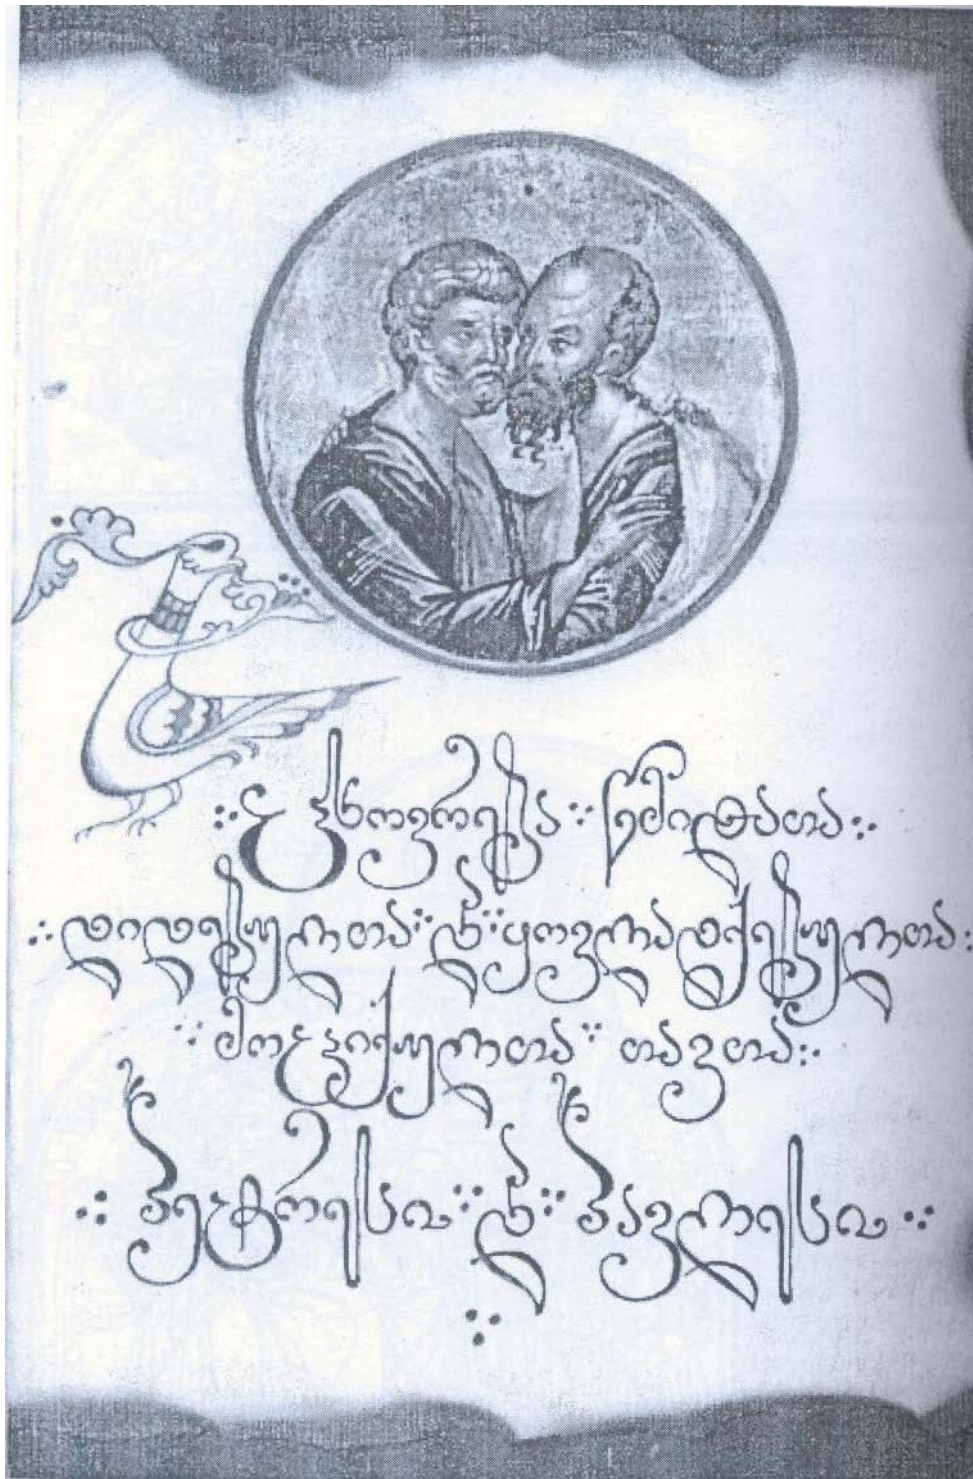 ცხოვრება წმიდათა
დიდებულთა და ყოვლადქებულთა
მოციქულთა თავთა
პეტრესჲ და პავლესჲ